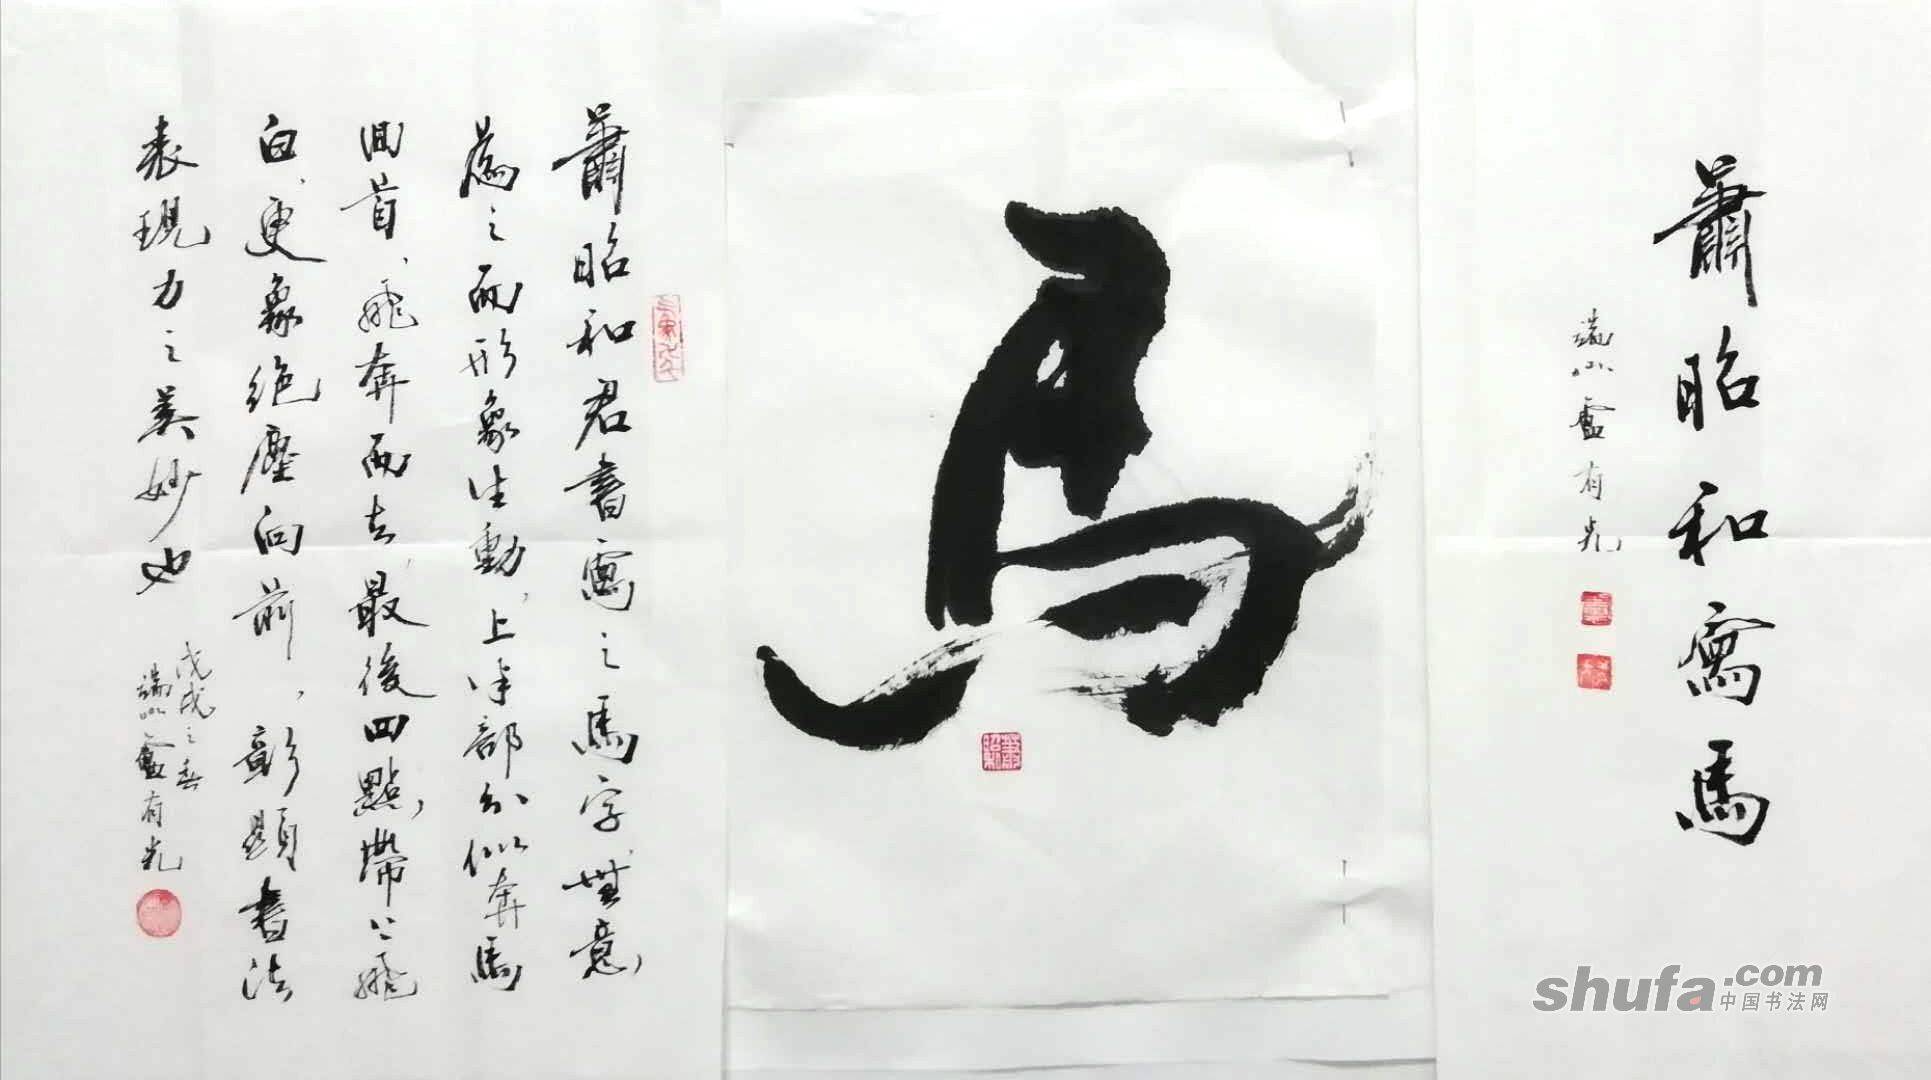 蕭昭和寫馬
端州盧有光
馬
蕭昭和君書寫之馬字無意
為之而形象生動，上半部分似奔馬
回首，飛奔而去，最後四點，帶以飛
白，更象絕塵向前，彰顯書法
表現力之美妙也
戊戌之春
端州盧有光
shufa.com
中国书法网